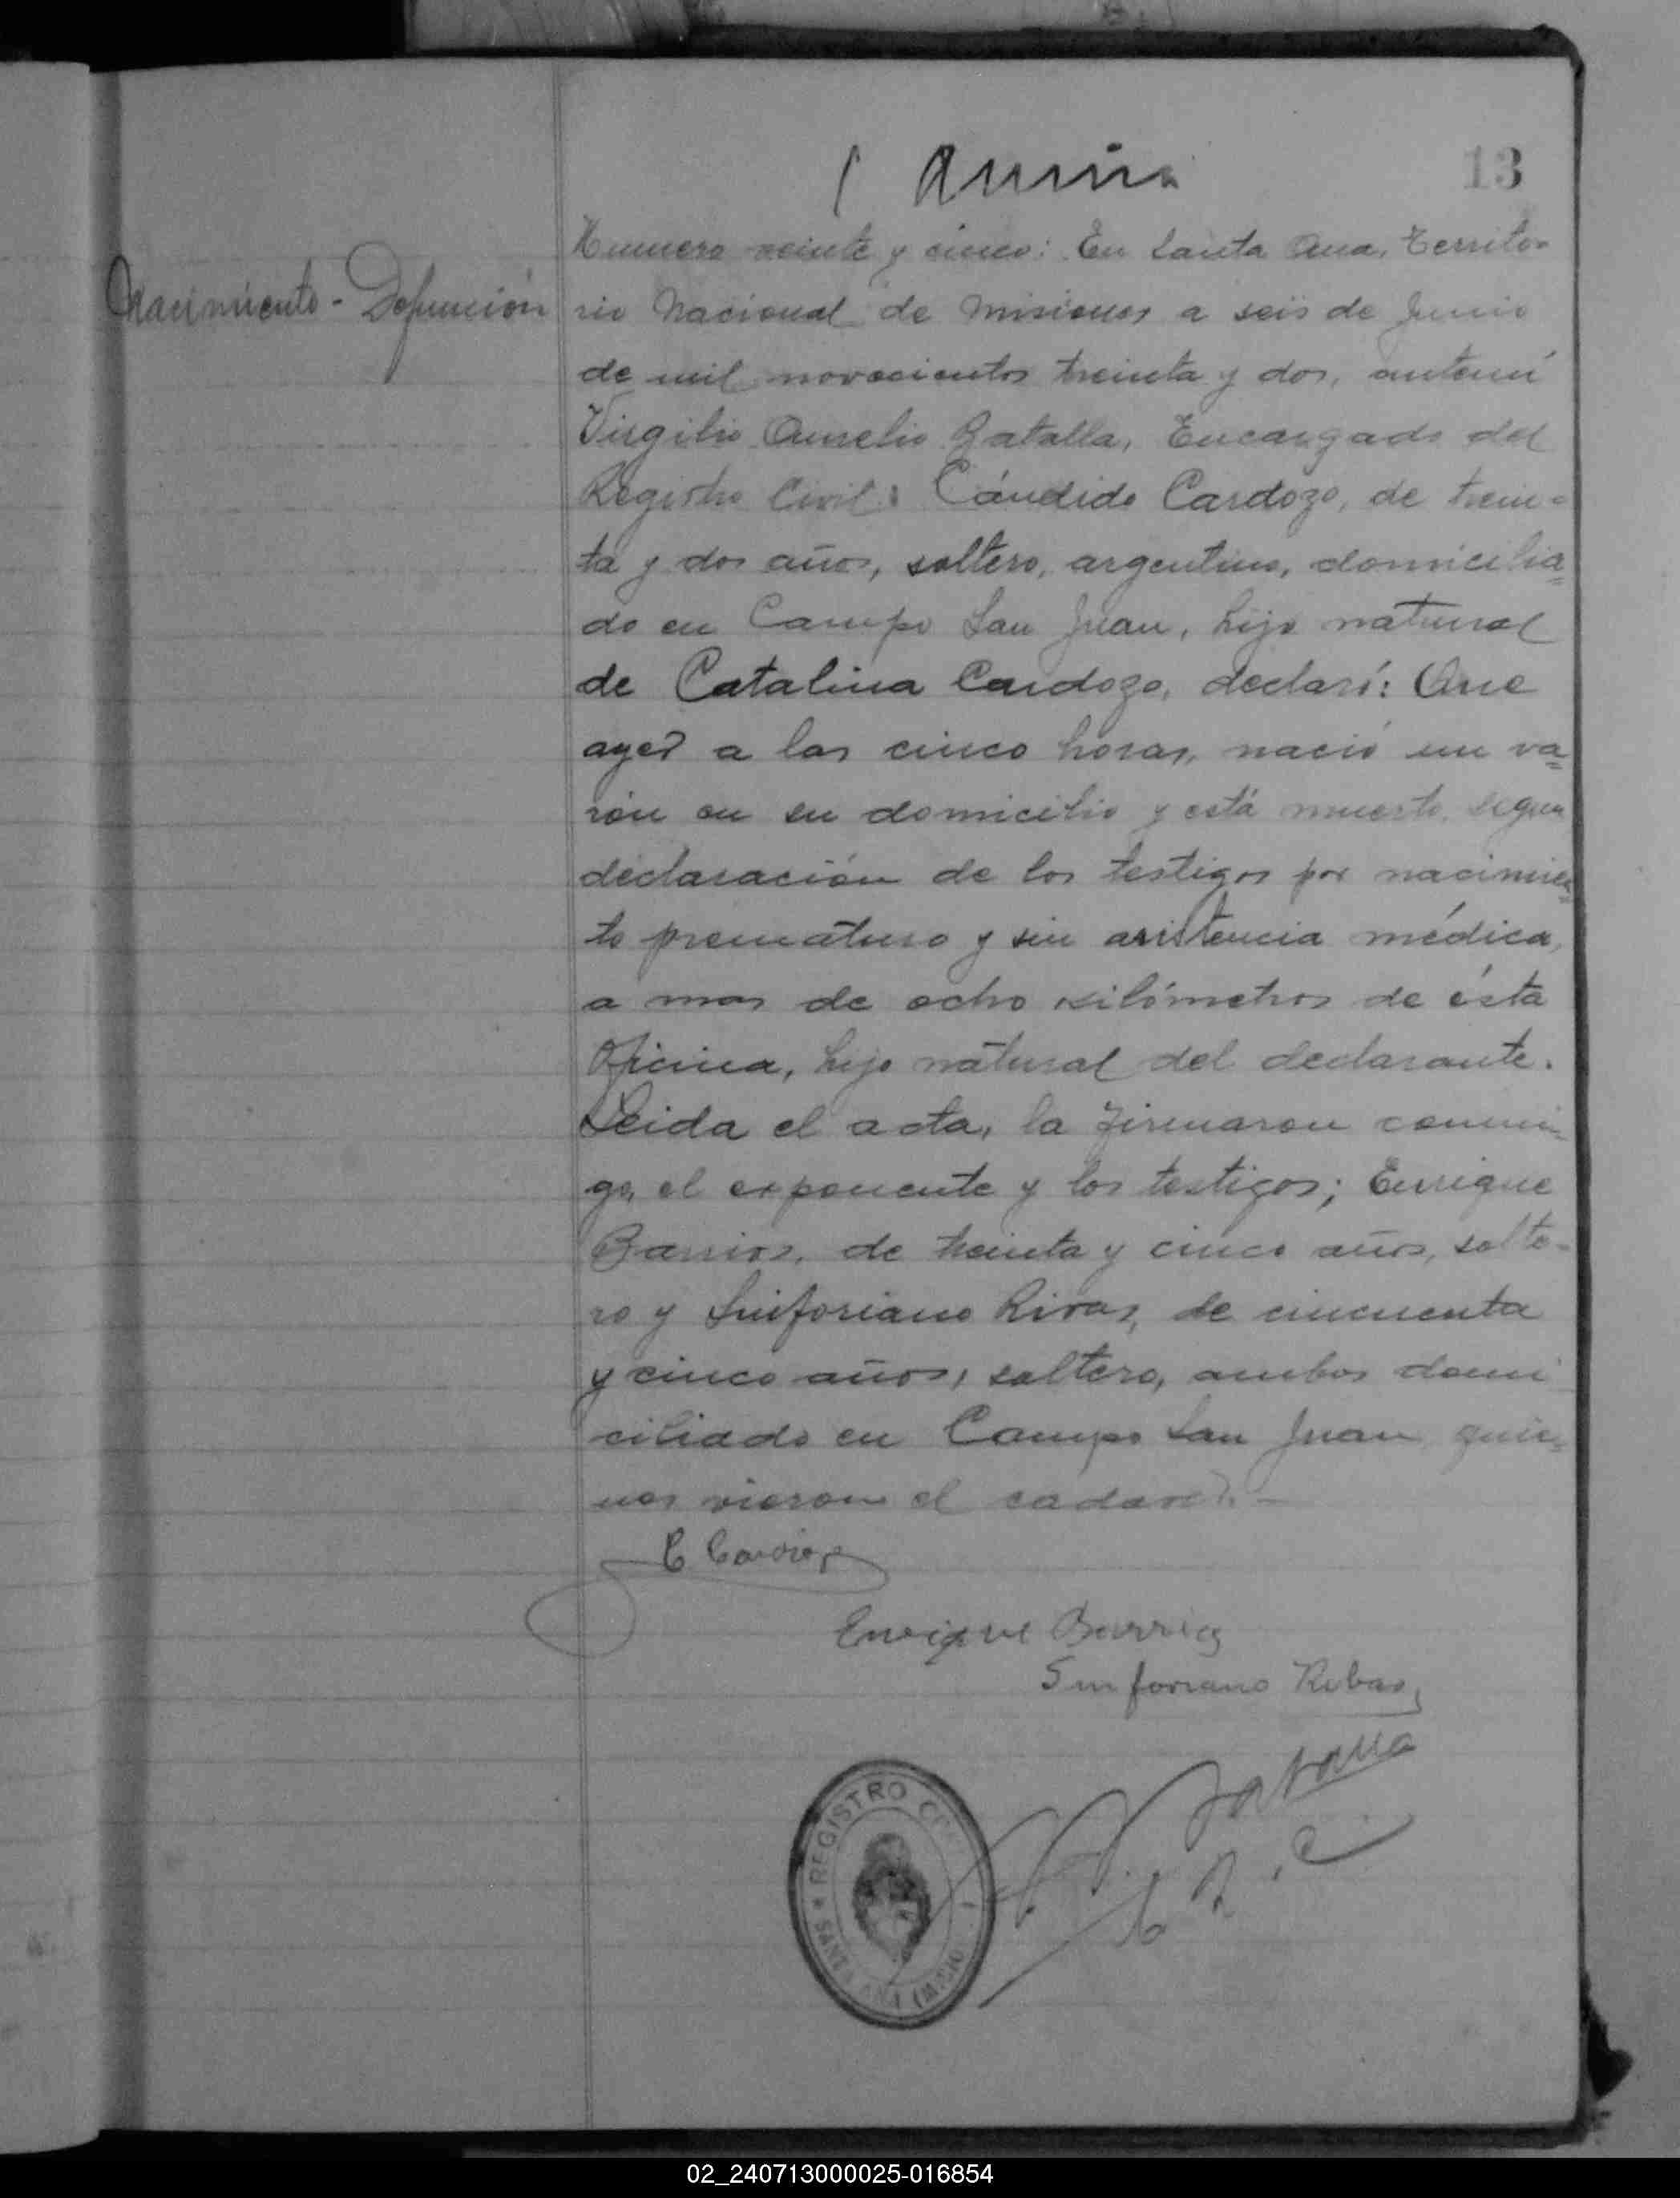 13
Numero veinte y cinco: En Santa Ana, Territo-
Nacimiento - Defunción
rio Nacional de Misiones a seis de Junio
de mil novecientos treinta y dos, antemí
Virgilio Aurelio Batalla, Encargado del
Registro Civil: Cándido Cardozo, de trein-
ta y dos años, soltero, argentino, domicilia=
do en Campo San Juan, hijo natural
de Catalina Cardozo, declaró: Que
ayer a las cinco horas, nació un va=
rón en su domicilio y está muerto, segun
declaración de los testigos por nacimien=
to prematuro y sin asistencia médica,
a mas de ocho kilómetros de ésta
Oficina, hijo natural del declarante.
Leida el acta, la firmaron conmi-
go, el exponente y los testigos; Enrique
Barrios, de treinta y cinco años, solte-
ro y Sinforiano Rivas, de cincuenta
y cinco años, soltero, ambos domi
ciliado en Campo San Juan quie=
nes vieron el cadaver.-
C Cardozo
Enrique Barrios
Sinforiano Ribas
Batalla
REGISTRO CIVIL
SANTA ANA (MISIO
02_240713000025-016854